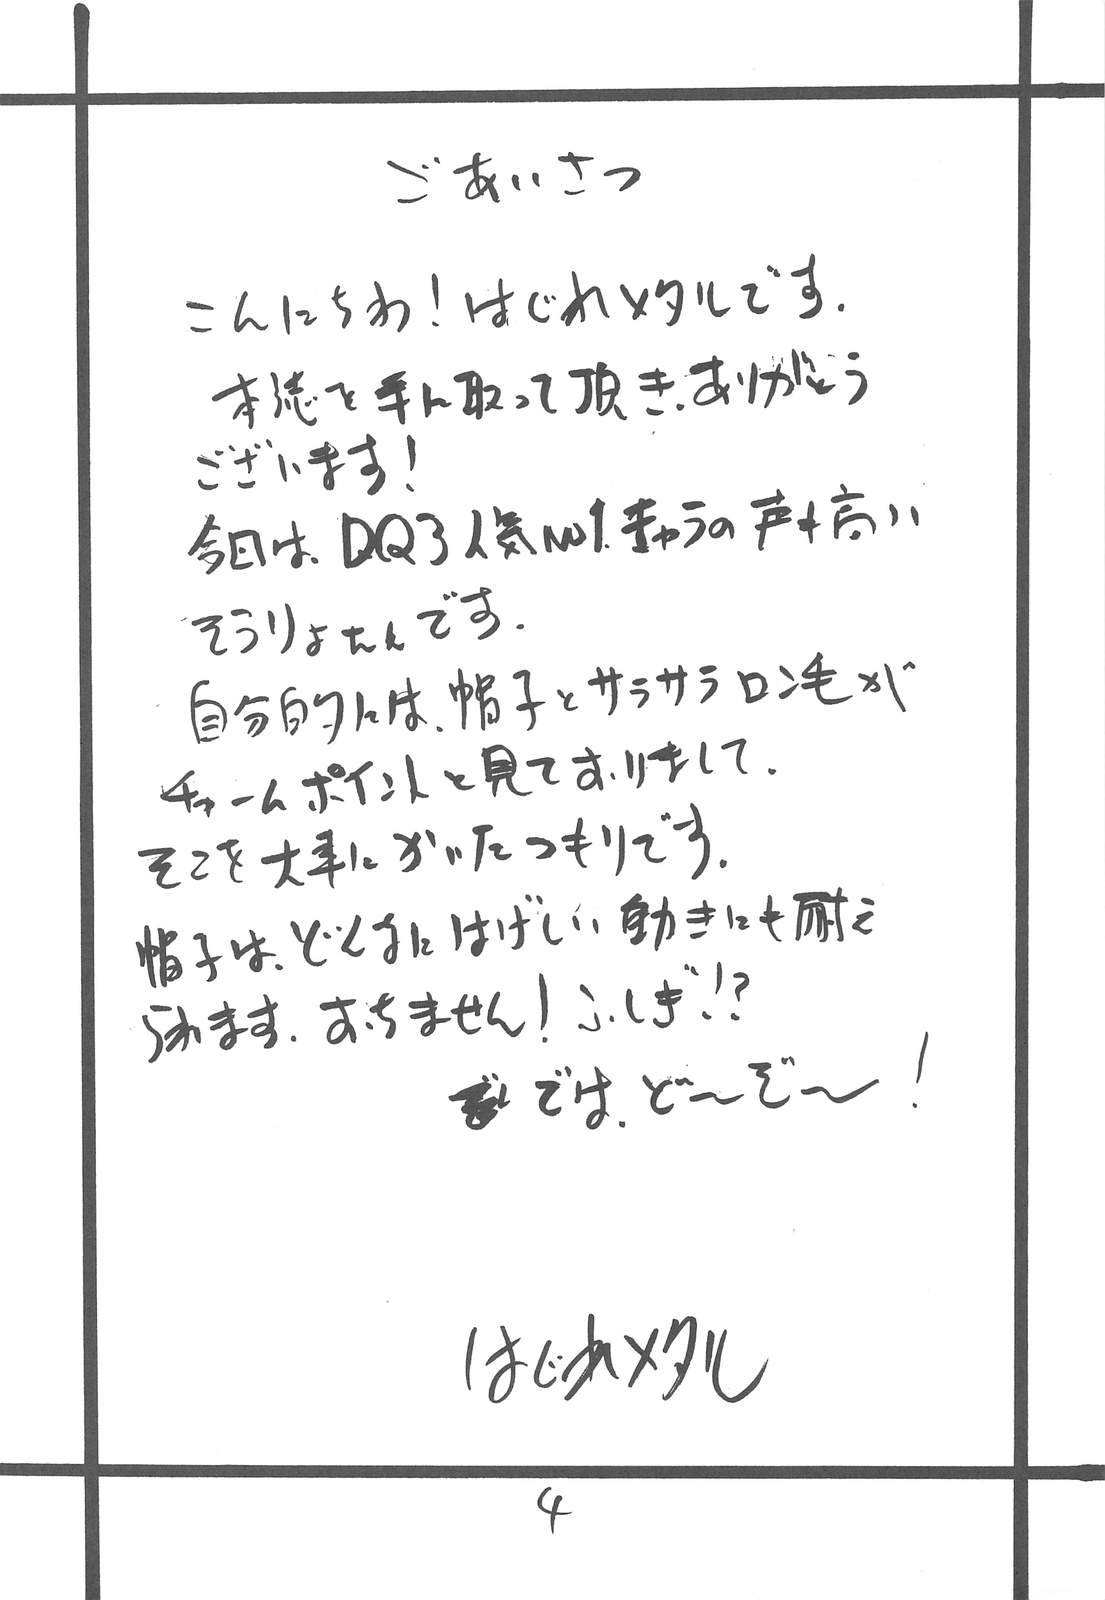 ごあいさつ
こんにちわ!はじれメタルです.
本誌を手に取って頂き、ありがとう
ございます!
今回は、DQ3人気No1.きゃらの声も高い
そうりょたんです.
自分的には、帽子とサラサラロン毛が
チャームポイントと見ておりまして.
そこを大事にかいたつもりです.
帽子は、どんなにはげしい動きにも耐え
られます.おちません!ふしぎ!?
では、ど〜ぞ〜!
はじれメタル
4